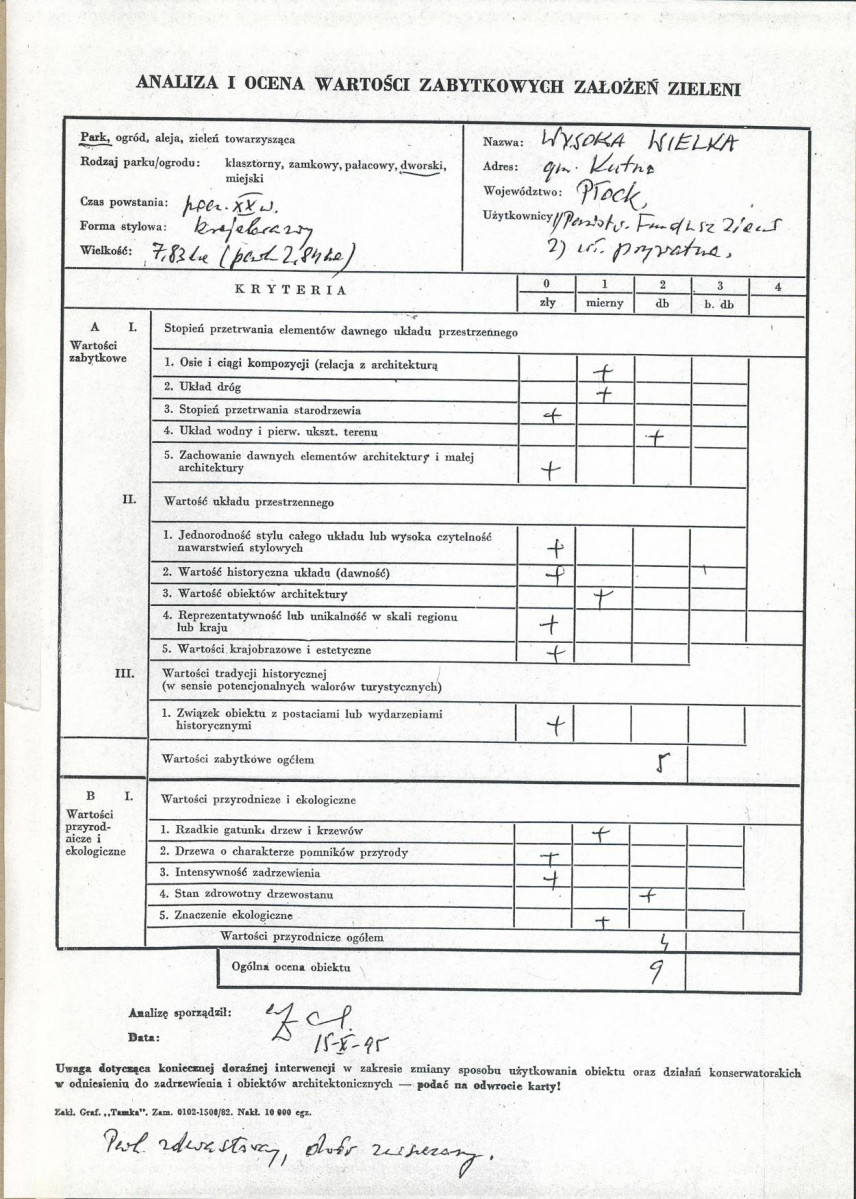 ANALIZA I OCENA WARTOŚCI ZABYTKOWYCH ZAŁOŻEŃ ZIELENI
Park, ogród, aleja, zieleń towarzysząca
Rodzaj parku/ogrodu: klasztorny, zamkowy, pałacowy, dworski,
miejski
Czas powstania: pocz. XX w.
Forma stylowa: krajobrazowy
Wielkość: 7,83 ha (park 2,84 ha)
Nazwa: WYSOKA WIELKA
Adres: gm. Kutno
Województwo: Płock,
Użytkownicy 1) Państw. Fundusz Ziemi
2) wł. prywatna.
KRYTERIA
0 1 2 3 4
zły mierny db b. db
A I. Stopień przetrwania elementów dawnego układu przestrzennego
Wartości
zabytkowe
1. Osie i ciągi kompozycji (relacja z architekturą +
2. Układ dróg +
3. Stopień przetrwania starodrzewia +
4. Układ wodny i pierw. ukszt. terenu +
5. Zachowanie dawnych elementów architektury i małej
architektury +
II. Wartość układu przestrzennego
1. Jednorodność stylu całego układu lub wysoka czytelność
nawarstwień stylowych +
2. Wartość historyczna układu (dawność) +
3. Wartość obiektów architektury +
4. Reprezentatywność lub unikalność w skali regionu
lub kraju +
5. Wartości krajobrazowe i estetyczne +
III. Wartości tradycji historycznej
(w sensie potencjonalnych walorów turystycznych)
1. Związek obiektu z postaciami lub wydarzeniami
historycznymi +
Wartości zabytkowe ogółem 5
B I. Wartości przyrodnicze i ekologiczne
Wartości
przyrod-
nicze i
ekologiczne
1. Rzadkie gatunki drzew i krzewów +
2. Drzewa o charakterze pomników przyrody +
3. Intensywność zadrzewienia +
4. Stan zdrowotny drzewostanu +
5. Znaczenie ekologiczne +
Wartości przyrodnicze ogółem 4
Ogólna ocena obiektu 9
Analizę sporządził:
Data: 15-X-95
Uwaga dotycząca koniecznej doraźnej interwencji w zakresie zmiany sposobu użytkowania obiektu oraz działań konserwatorskich
w odniesieniu do zadrzewienia i obiektów architektonicznych — podać na odwrocie karty!
Zakł. Graf. „Tamka". Zam. 0102-1500/82. Nakł. 10 000 egz.
Park zdewastowany, dwór zniszczony.